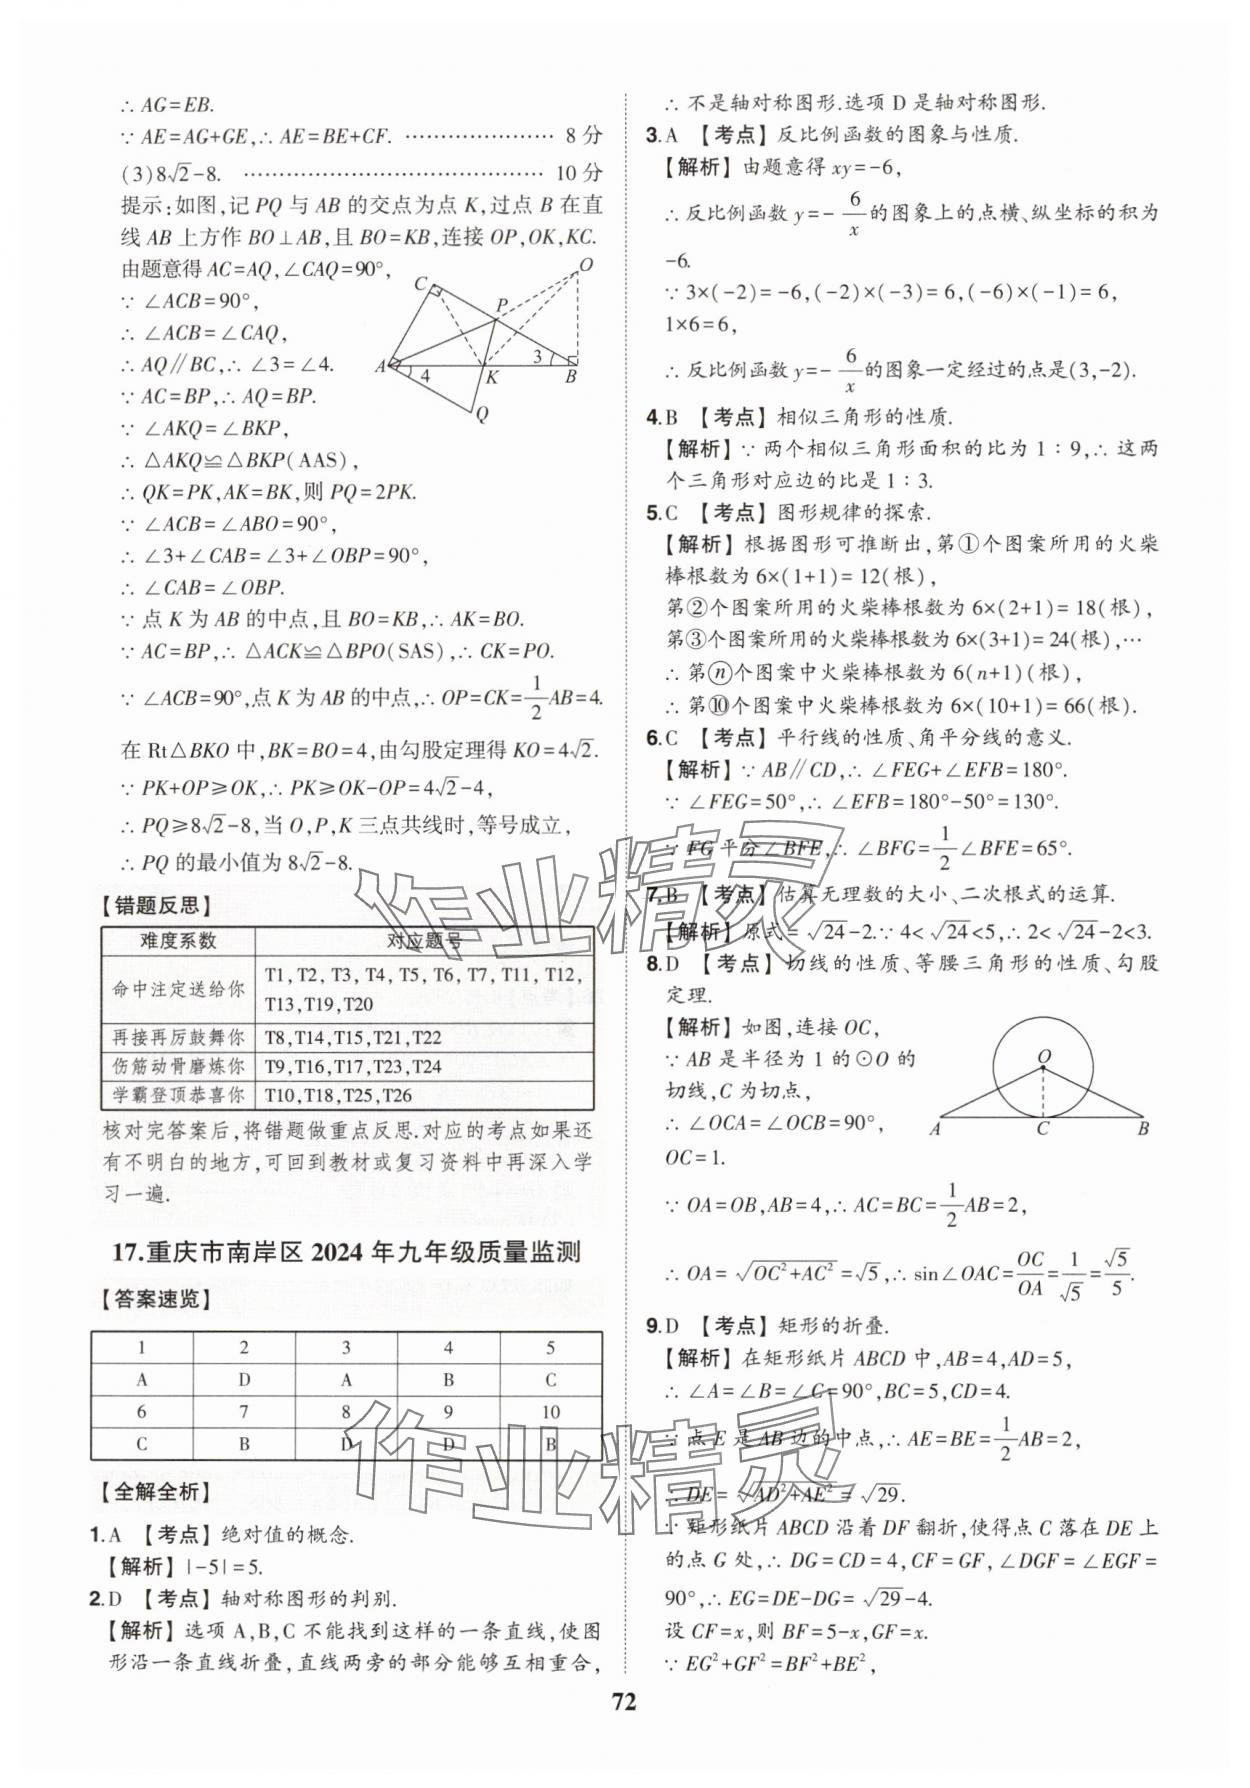 ∴ AG=EB.
∵ AE=AG+GE,∴ AE=BE+CF. ………………… 8 分
(3)8√2-8. …………………………………… 10 分
提示:如图,记 PQ 与 AB 的交点为点 K,过点 B 在直
线 AB 上方作 BO⊥AB,且 BO=KB,连接 OP,OK,KC.
由题意得 AC=AQ,∠CAQ=90°,
∵ ∠ACB=90°,
∴ ∠ACB=∠CAQ,
∴ AQ∥BC,∴ ∠3=∠4.
∵ AC=BP,∴ AQ=BP.
∵ ∠AKQ=∠BKP,
∴ △AKQ≌△BKP(AAS),
∴ QK=PK,AK=BK,则 PQ=2PK.
∵ ∠ACB=∠ABO=90°,
∴ ∠3+∠CAB=∠3+∠OBP=90°,
∴ ∠CAB=∠OBP.
∵ 点 K 为 AB 的中点,且 BO=KB,∴ AK=BO.
∵ AC=BP,∴ △ACK≌△BPO(SAS),∴ CK=PO.
∵ ∠ACB=90°,点 K 为 AB 的中点,∴ OP=CK=1/2AB=4.
在 Rt△BKO 中,BK=BO=4,由勾股定理得 KO=4√2.
∵ PK+OP≥OK,∴ PK≥OK-OP=4√2-4,
∴ PQ≥8√2-8,当 O,P,K 三点共线时,等号成立,
∴ PQ 的最小值为 8√2-8.
C
O
P
A
4
K
3
B
Q
【错题反思】
难度系数 对应题号
命中注定送给你 T1,T2,T3,T4,T5,T6,T7,T11,T12,
T13,T19,T20
再接再厉鼓舞你 T8,T14,T15,T21,T22
伤筋动骨磨炼你 T9,T16,T17,T23,T24
学霸登顶恭喜你 T10,T18,T25,T26
核对完答案后,将错题做重点反思.对应的考点如果还
有不明白的地方,可回到教材或复习资料中再深入学
习一遍.
17.重庆市南岸区 2024 年九年级质量监测
【答案速览】
1 2 3 4 5
A D A B C
6 7 8 9 10
C B D D B
【全解全析】
1.A 【考点】绝对值的概念.
【解析】|-5|=5.
2.D 【考点】轴对称图形的判别.
【解析】选项 A,B,C 不能找到这样的一条直线,使图
形沿一条直线折叠,直线两旁的部分能够互相重合,
∴ 不是轴对称图形.选项 D 是轴对称图形.
3.A 【考点】反比例函数的图象与性质.
【解析】由题意得 xy=-6,
∴ 反比例函数 y=-6/x的图象上的点横、纵坐标的积为
-6.
∵ 3×(-2)=-6,(-2)×(-3)=6,(-6)×(-1)=6,
1×6=6,
∴ 反比例函数 y=-6/x的图象一定经过的点是(3,-2).
4.B 【考点】相似三角形的性质.
【解析】∵ 两个相似三角形面积的比为 1∶9,∴ 这两
个三角形对应边的比是 1∶3.
5.C 【考点】图形规律的探索.
【解析】根据图形可推断出,第①个图案所用的火柴
棒根数为 6×(1+1)=12(根),
第②个图案所用的火柴棒根数为 6×(2+1)=18(根),
第③个图案所用的火柴棒根数为 6×(3+1)=24(根),…
∴ 第ⓝ个图案中火柴棒根数为 6(n+1)(根),
∴ 第⑩个图案中火柴棒根数为 6×(10+1)=66(根).
6.C 【考点】平行线的性质、角平分线的意义.
【解析】∵ AB∥CD,∴ ∠FEG+∠EFB=180°.
∵ ∠FEG=50°,∴ ∠EFB=180°-50°=130°.
∵ FG 平分∠BFE,∴ ∠BFG=1/2∠BFE=65°.
7.B 【考点】估算无理数的大小、二次根式的运算.
【解析】原式=√24-2.∵ 4<√24<5,∴ 2<√24-2<3.
8.D 【考点】切线的性质、等腰三角形的性质、勾股
定理.
【解析】如图,连接 OC,
∵ AB 是半径为 1 的⊙O 的
切线,C 为切点,
∴ ∠OCA=∠OCB=90°,
OC=1.
O
A
C
B
∵ OA=OB,AB=4,∴ AC=BC=1/2AB=2,
∴ OA=√(OC²+AC²)=√5,∴ sin∠OAC=OC/OA=1/√5=√5/5.
9.D 【考点】矩形的折叠.
【解析】在矩形纸片 ABCD 中,AB=4,AD=5,
∴ ∠A=∠B=∠C=90°,BC=5,CD=4.
∵ 点 E 是 AB 边的中点,∴ AE=BE=1/2AB=2,
∴ DE=√(AD²+AE²)=√29.
∵ 矩形纸片 ABCD 沿着 DF 翻折,使得点 C 落在 DE 上
的点 G 处,∴ DG=CD=4,CF=GF,∠DGF=∠EGF=
90°,∴ EG=DE-DG=√29-4.
设 CF=x,则 BF=5-x,GF=x.
∵ EG²+GF²=BF²+BE²,
72
作业精灵
作业精灵